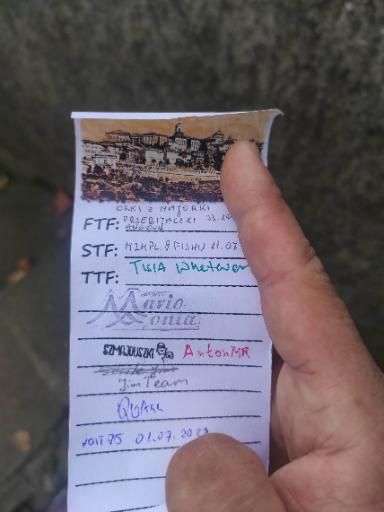 ORKI Z MAJORKI
FTF: PRZEBITACZKI
STF: MZKPL & FISHU 11.07
TTF: Tusia Whatever
Mario
Sonia
SZMAJDUSZKI AntonMR
JimTeam
QUARK
VOIT75 01.07.2023